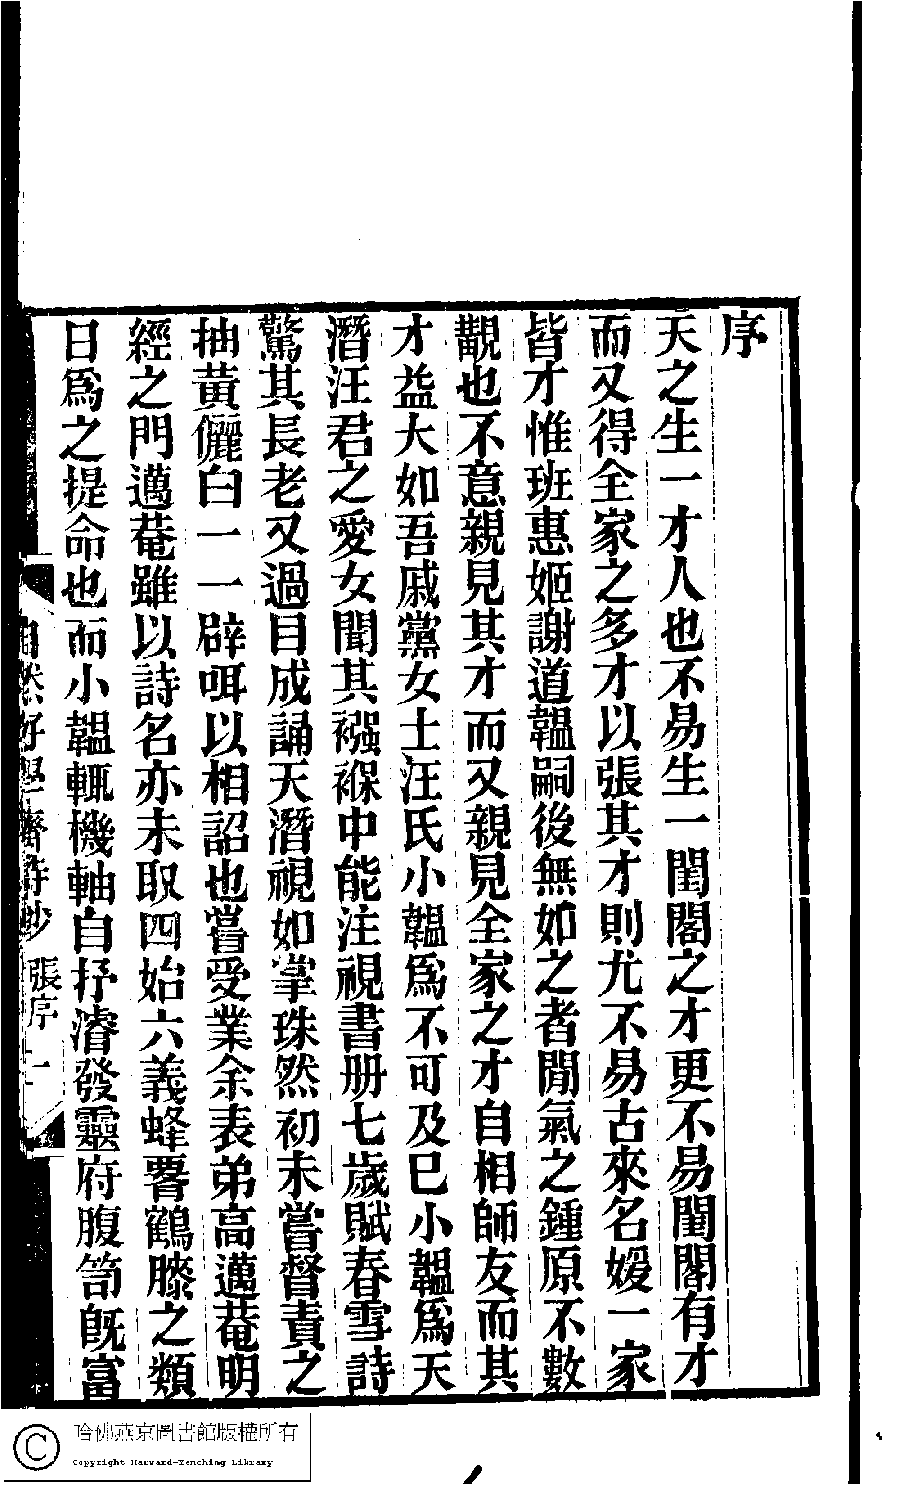 序
天之生一才人也不易生一閨閣之才更不易閨閣有才
而又得全家之多才以張其才則尤不易古來名媛一家
皆才惟班惠姬謝道韞嗣後無如之者閒氣之鍾原不數
觀也不意親見其才而又親見全家之才自相師友而其
才益大如吾戚黨女士汪氏小韞爲不可及巳小韞爲天
潛汪君之愛女聞其襁褓中能注視書册七歲賦春雪詩
驚其長老又過目成誦天潛視如掌珠然初未嘗督責之
抽黃儷白一一辟咡以相詔也嘗受業余表弟高邁菴明
經之門邁菴雖以詩名亦未取四始六義蜂腰鶴膝之類
日爲之提命也而小韞輒機軸自抒濬發靈府腹笥旣富
自然好學齋詩鈔 張序 一
哈佛燕京圖書館版權所有
Copyright Harvard-Yenching Library